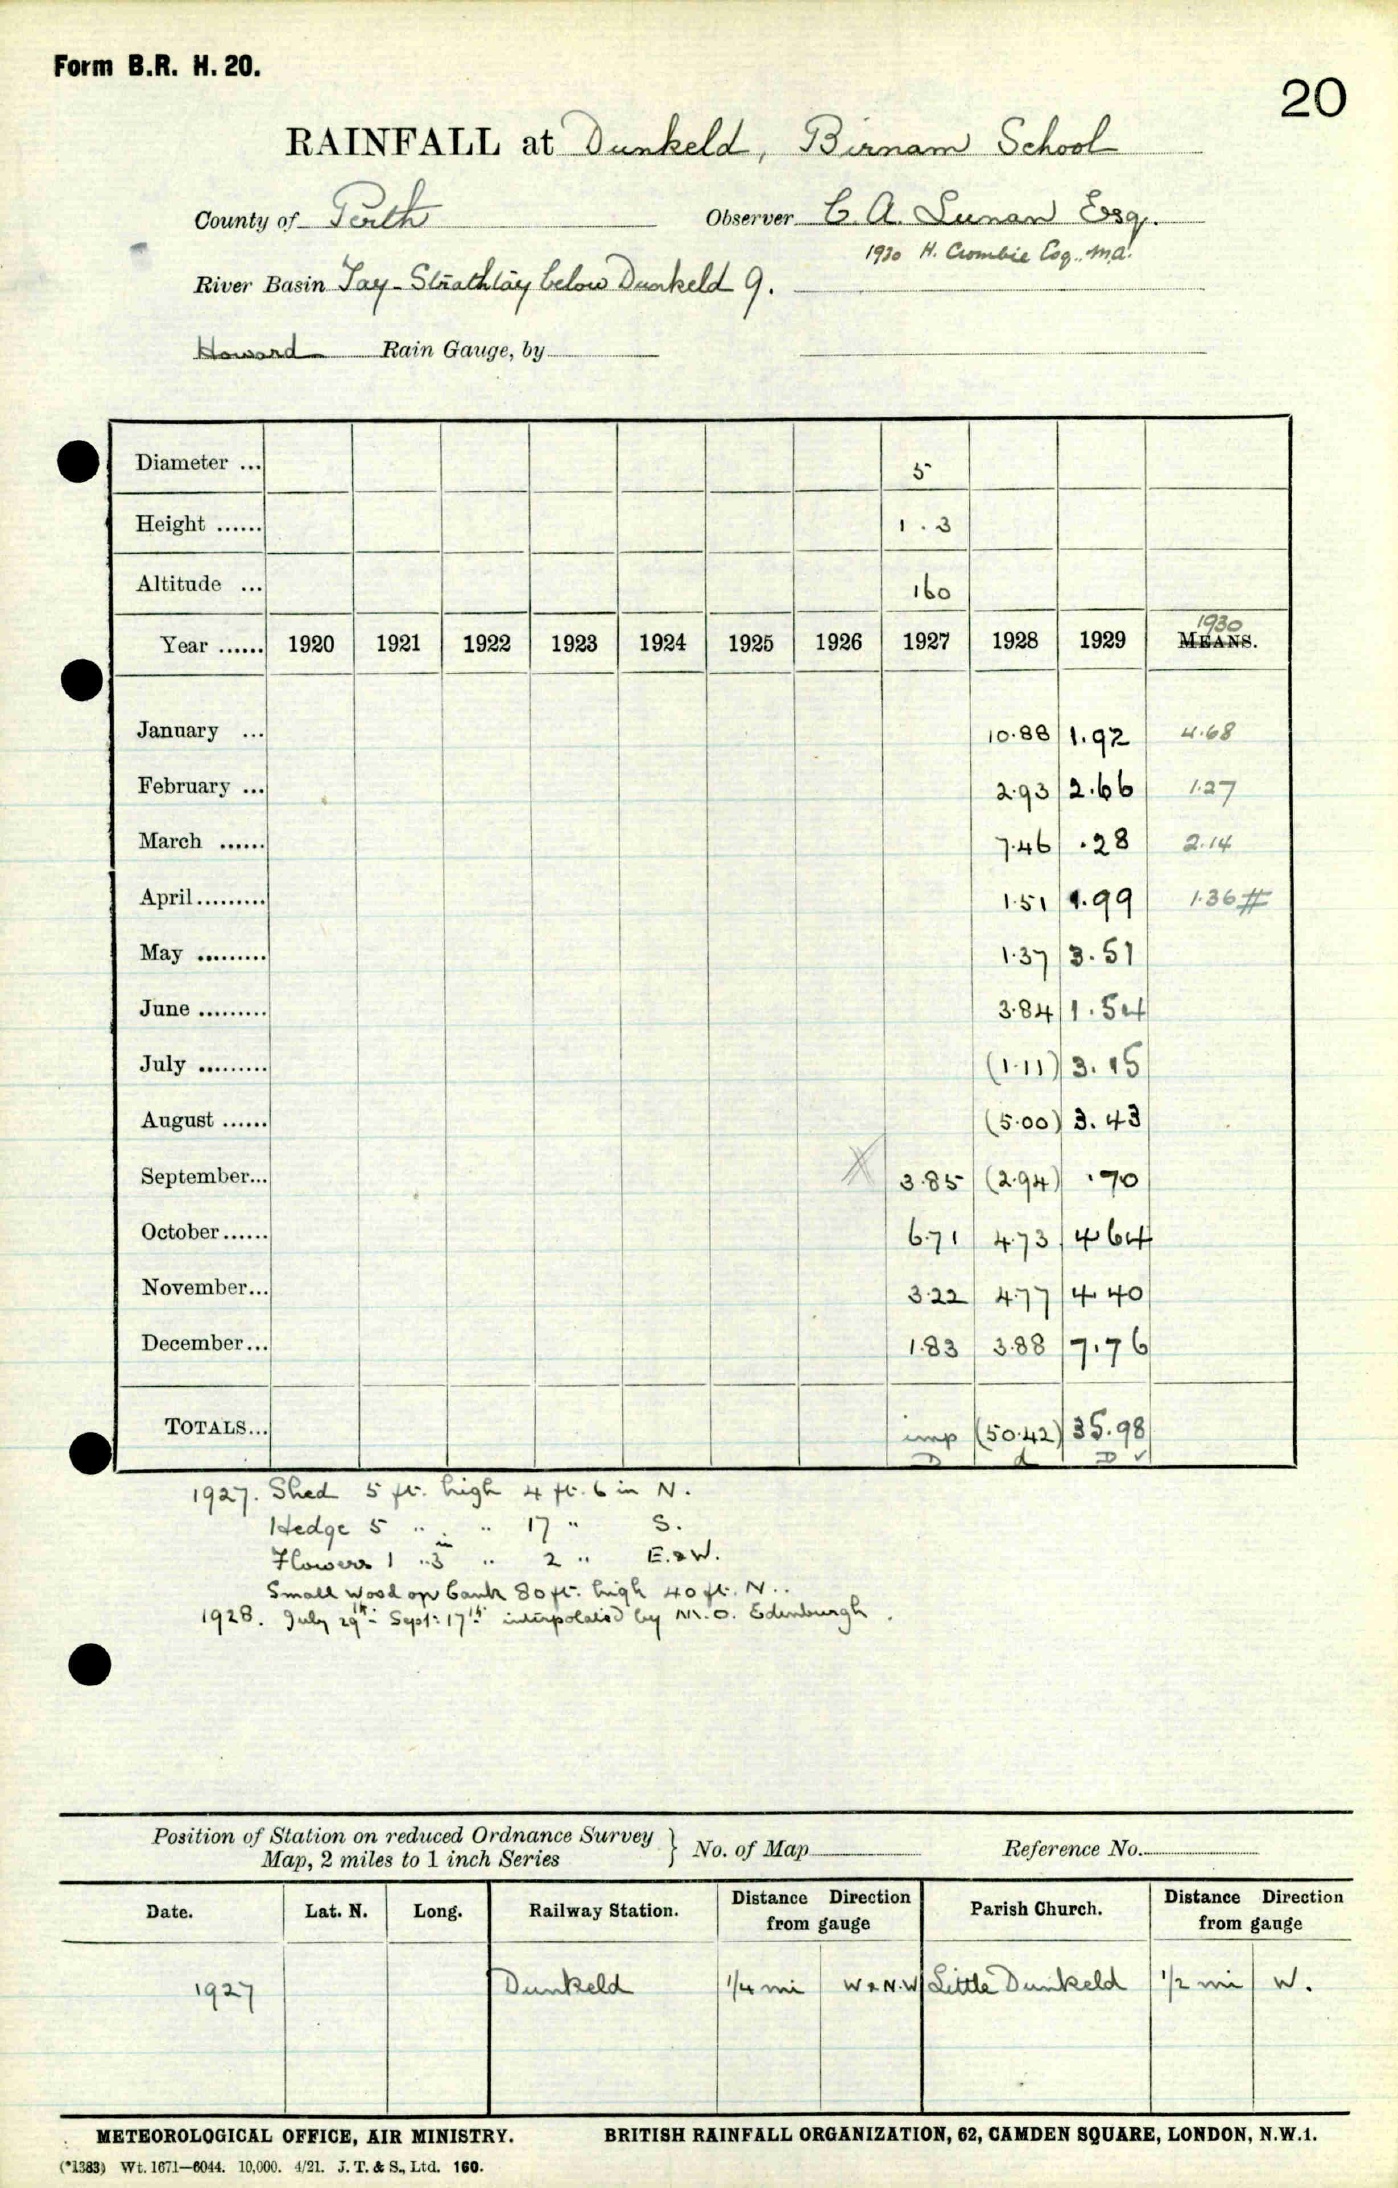 Form B.R. H. 20.
20
RAINFALL at Dunkeld, Birnam School
County of Perth Observer C. A. Lunan Esq.
1930 H. Crombie Esq., M.A.
River Basin Tay - Strathtay below Dunkeld 9.
Howard Rain Gauge, by
Diameter ... 5
Height ...... 1.3
Altitude ... 160
1930
Year ...... 1920 1921 1922 1923 1924 1925 1926 1927 1928 1929 MEANS.
January ... 10.88 1.92 4.68
February ... 2.93 2.66 1.27
March ...... 7.46 .28 2.14
April......... 1.51 1.99 1.36 #
May ......... 1.37 3.51
June ......... 3.84 1.54
July ......... (1.11) 3.15
August ...... (5.00) 3.43
September... 3.85 (2.94) .70
October...... 6.71 4.73 4 64
November... 3.22 4.77 4 40
December... 1.83 3.88 7.76
TOTALS... imp (50.42) 35.98
D d D ✓
1927. Shed 5 ft. high 4 ft. 6 in N.
Hedge 5 " " 17 " S.
Flowers 1 " 3 in " 2 " E. & W.
Small wood on bank 80 ft. high 40 ft. N..
1928. July 29th - Sept: 17th interpolated by M.O. Edinburgh.
Position of Station on reduced Ordnance Survey
Map, 2 miles to 1 inch Series } No. of Map Reference No.
Date. Lat. N. Long. Railway Station. Distance Direction from gauge Parish Church. Distance Direction from gauge
1927 Dunkeld 1/4 mi W & N.W Little Dunkeld 1/2 mi W.
METEOROLOGICAL OFFICE, AIR MINISTRY. BRITISH RAINFALL ORGANIZATION, 62, CAMDEN SQUARE, LONDON, N.W.1.
(*1383) Wt. 1671—6044. 10,000. 4/21. J. T. & S., Ltd. 160.